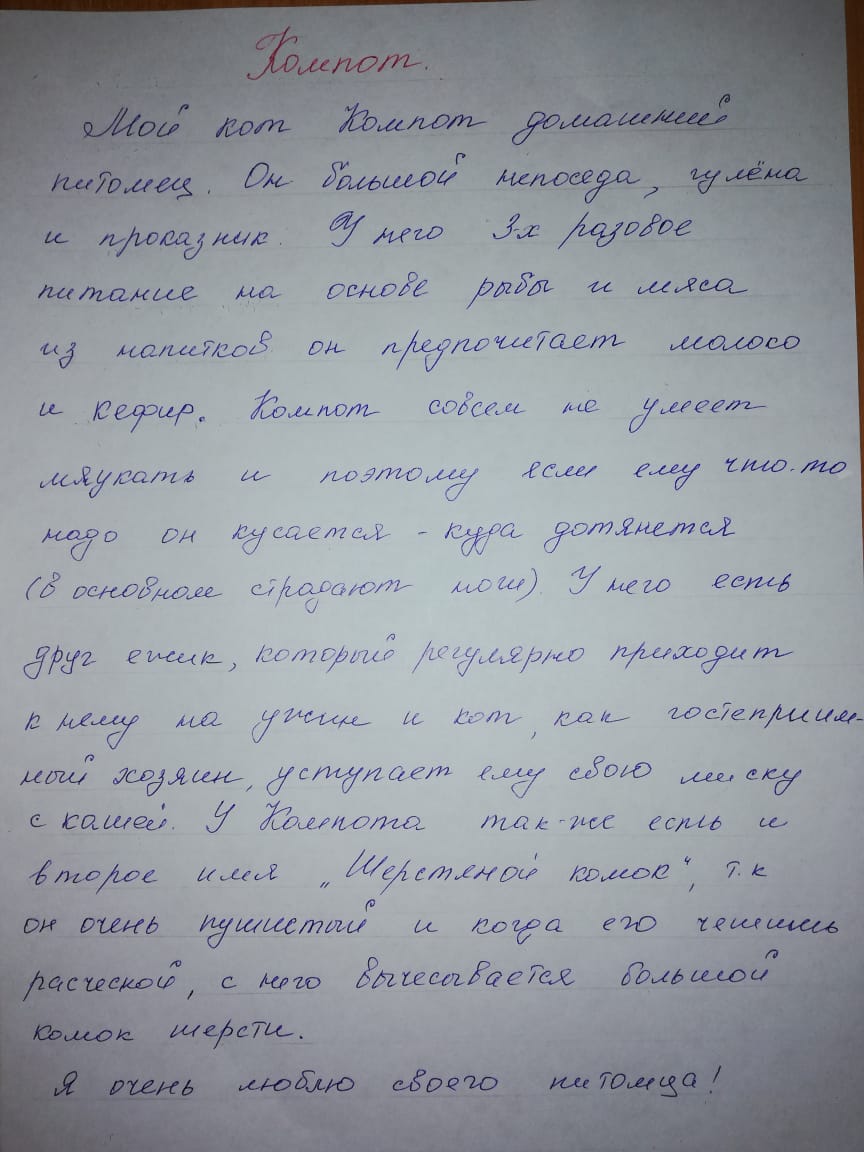 Компот.
Мой кот Компот домашний
питомец. Он большой непоседа, гулёна
и проказник. У него 3-х разовое
питание на основе рыбы и мяса
из напитков он предпочитает молоко
и кефир. Компот совсем не умеет
мяукать и поэтому если ему что-то
надо он кусается - куда дотянется
(в основном страдают ноги). У него есть
друг ежик, который регулярно приходит
к нему на ужин и кот, как гостеприим-
ный хозяин, уступает ему свою миску
с кашей. У Компота так-же есть и
второе имя „Шерстяной комок“, т.к
он очень пушистый и когда его чешишь
расческой, с него вычесывается большой
комок шерсти.
Я очень люблю своего питомца!